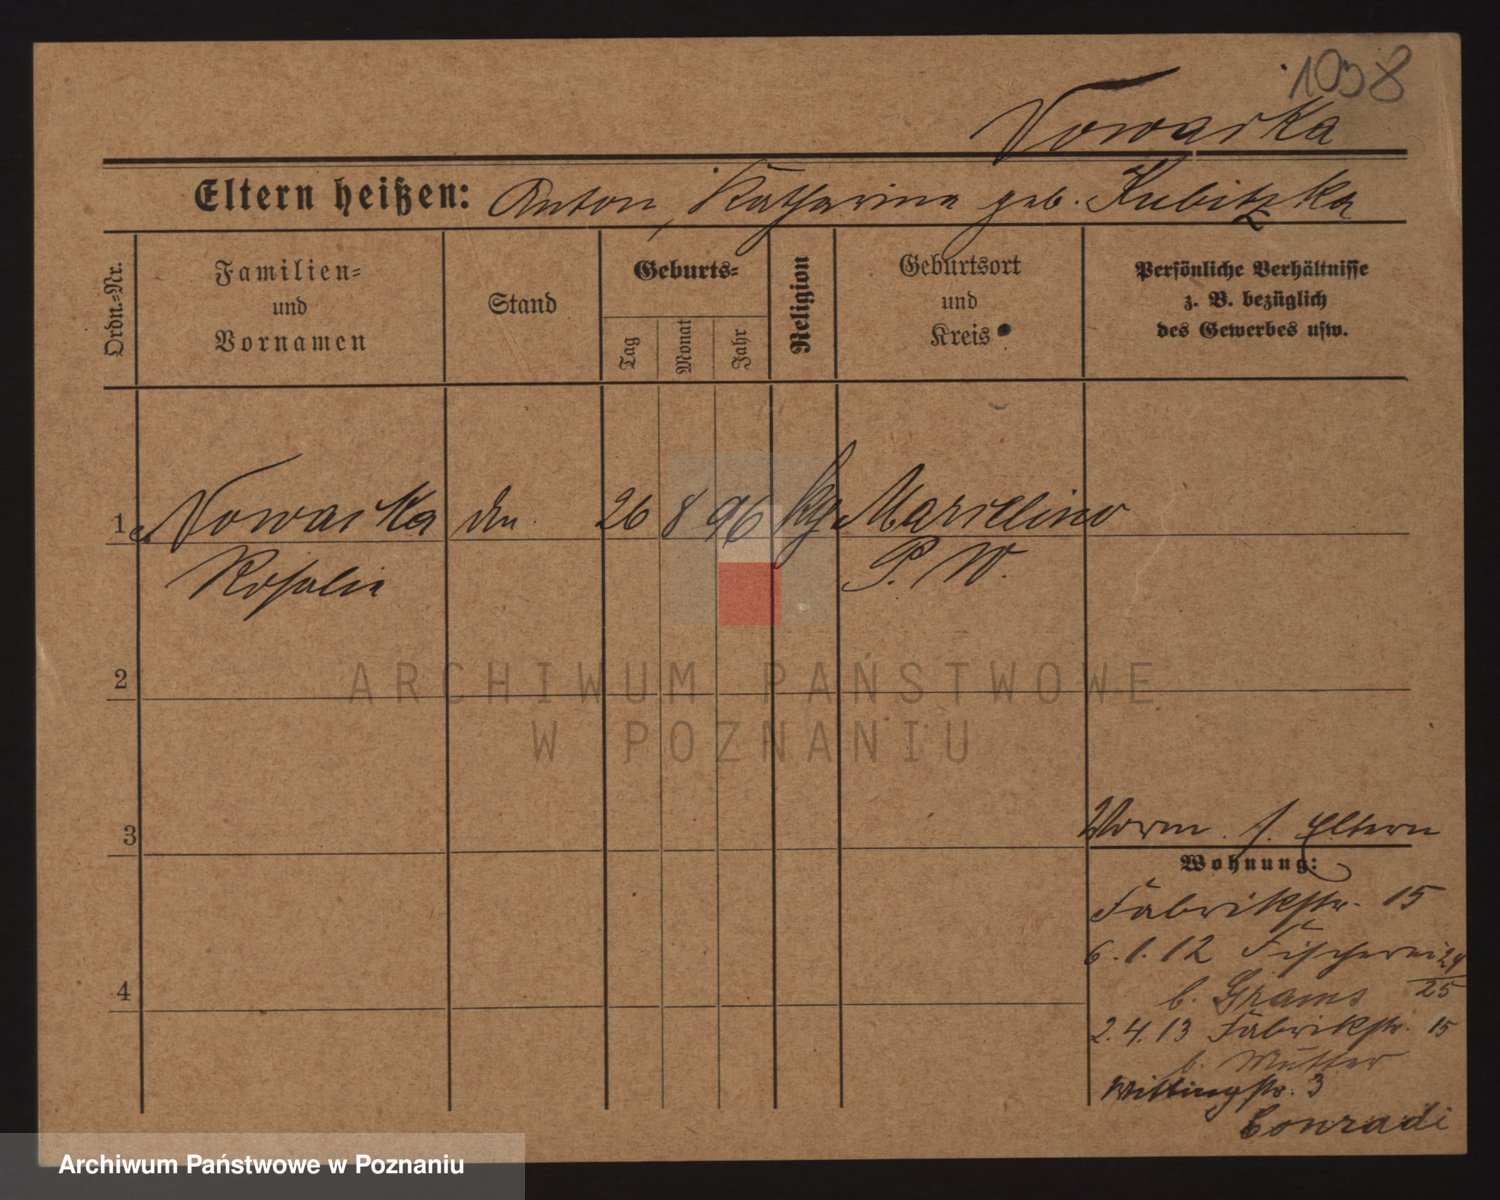 1938
Nowacka
Eltern heißen: Anton, Katharina geb. Kubitzka
Ordn.=Nr.
Familien=
und
Vornamen
Stand
Geburts=
Tag
Monat
Jahr
Religion
Geburtsort
und
Kreis
Persönliche Verhältnisse
z. B. bezüglich
des Gewerbes usw.
1 Nowacka 26 8 96 Marcellino
Rosalie P. W.
2
ARCHIWUM PAŃSTWOWE
W POZNANIU
3
s. Eltern
Wohnung:
Fabrikstr. 15
6.1.12 Fischerei 24/25
b. Grams
2.4.13 Fabrikstr. 15
b. Mutter
4
Wittingstr. 3
Conradi
Archiwum Państwowe w Poznaniu